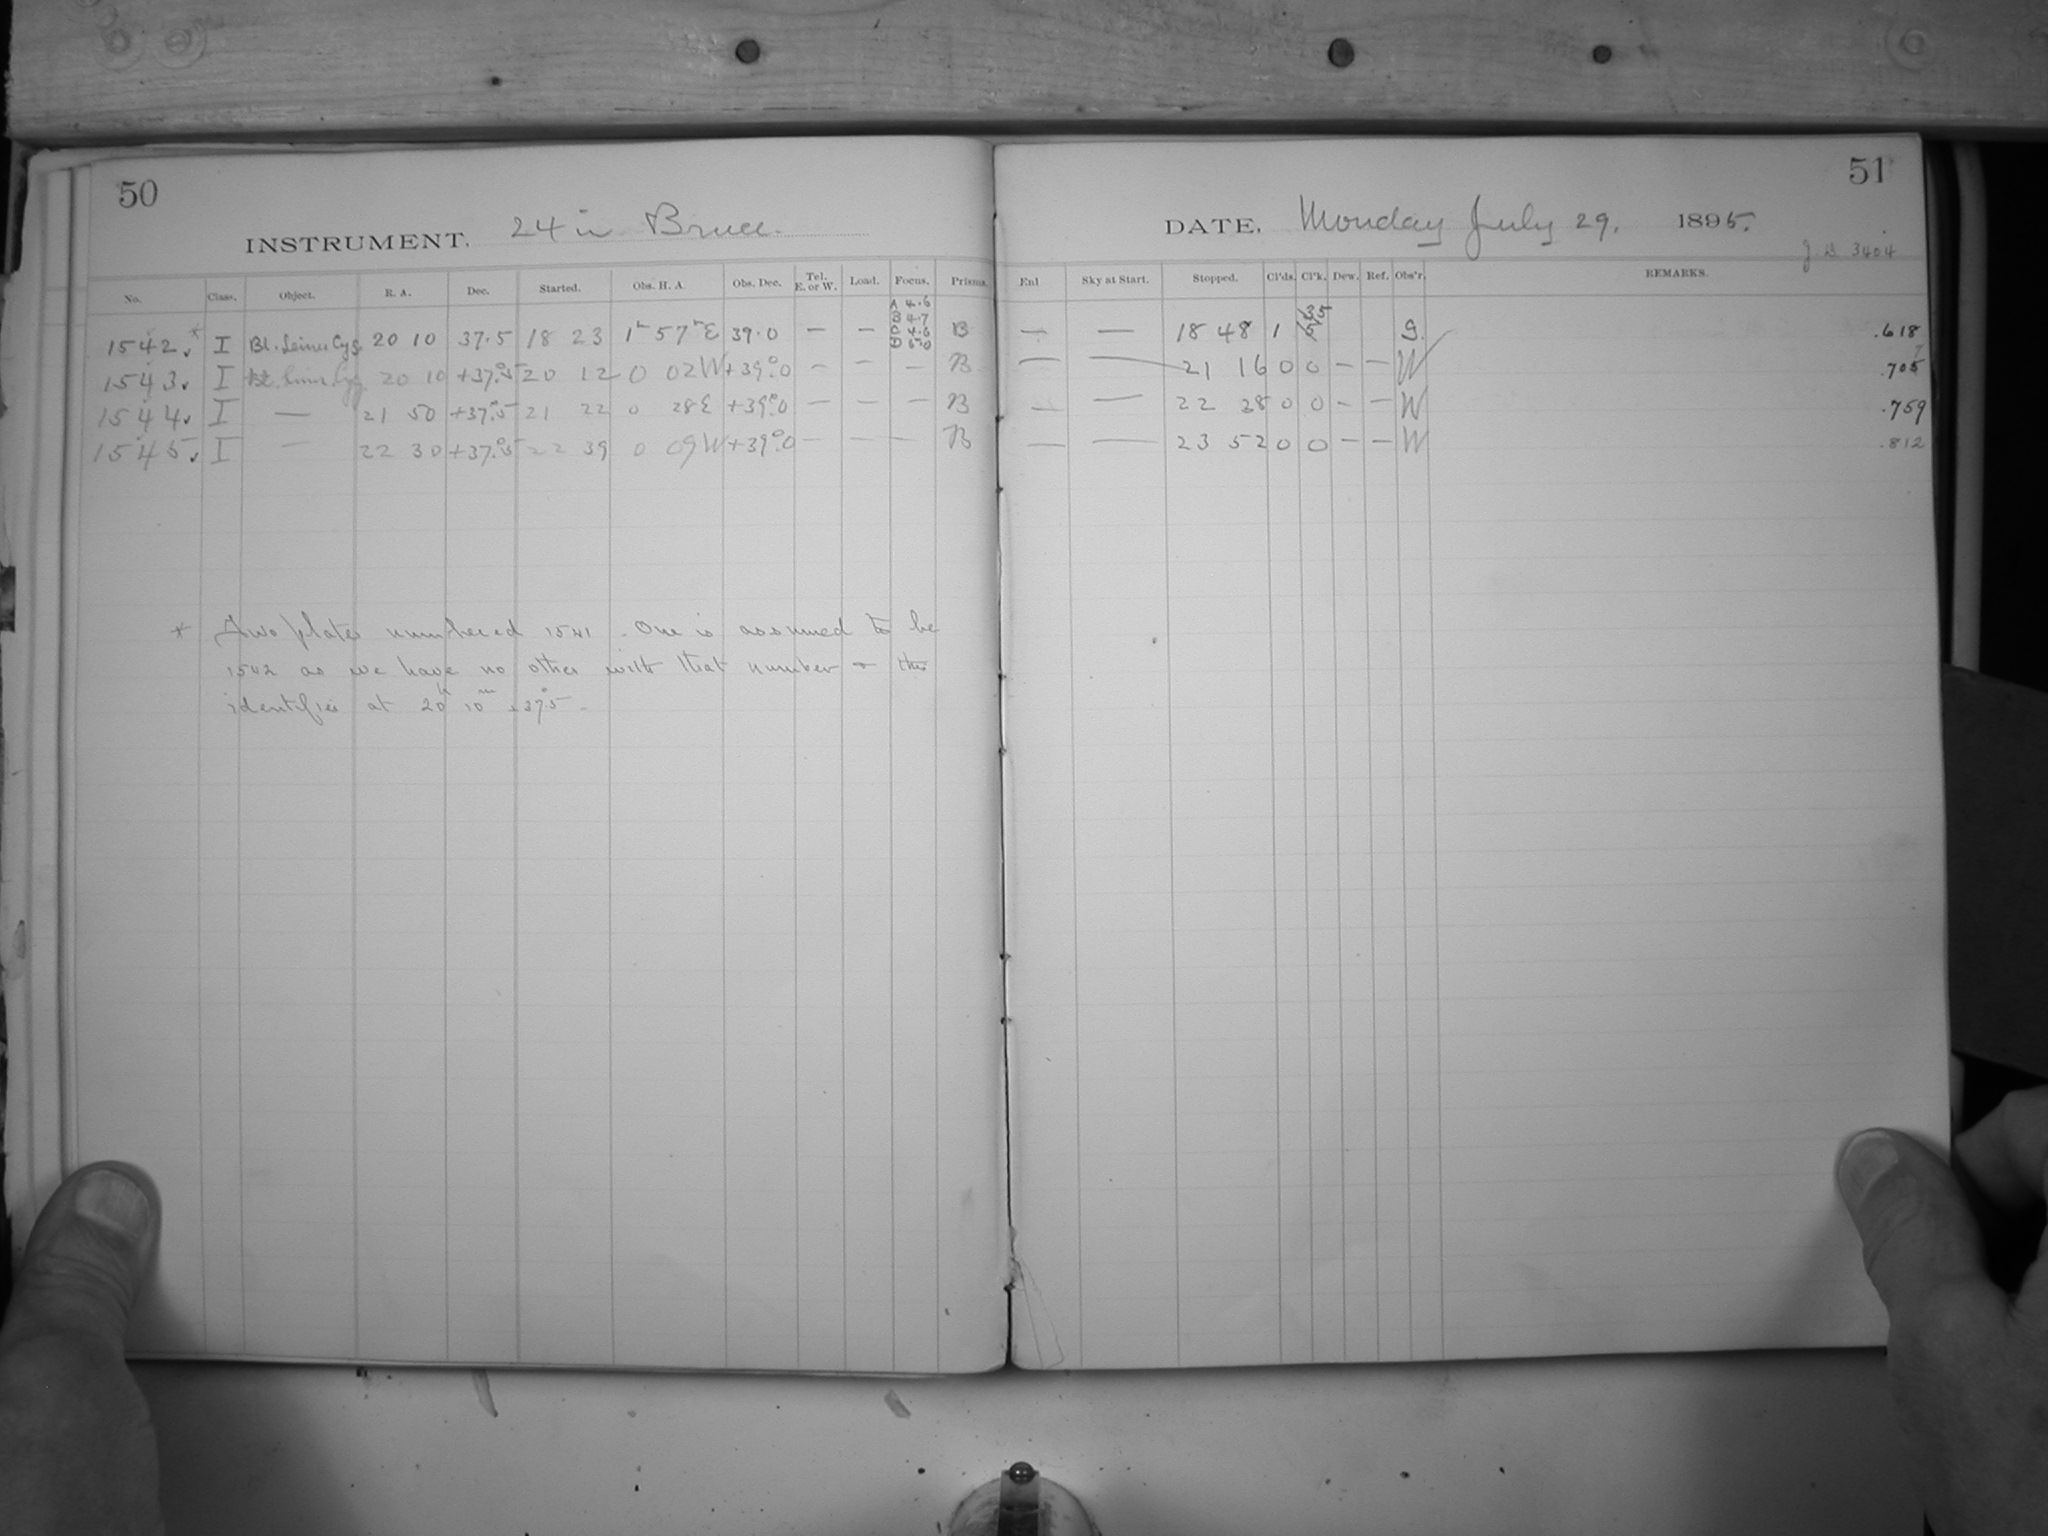 50
INSTRUMENT. 24 in Bruce.
No. Class. Object. R. A. Dec. Started. Obs. H. A. Obs. Dec. Tel. E. or W. Load. Focus. Prisms.
A 4.6
B 4.7
C 4.6
D 5.0
1542.* I Bl. Seines Cyg. 20 10 37.5 18 23 1h 57m E 39.0 — — B
1543. I 20 10 +37.°5 20 12 0 02W +39.°0 — — — B
1544. I — 21 50 +37.°5 21 22 0 28E +39.°0 — — — B
1545. I — 22 30 +37.°5 22 39 0 09W +39.°0 — — — B
* Two plates numbered 1541. One is assumed to be
1542 as we have no other with that number + this
identifies at 20h 10m +37.°5.
51
DATE. Monday July 29. 1895.
J.D. 3404
Enl Sky at Start. Stopped. Cl'ds. Cl'k. Dew. Ref. Obs'r. REMARKS.
35
— — 18 48 1 5 S. .618
— — 21 16 0 0 — — W .705
— — 22 28 0 0 — — W .759
— — 23 52 0 0 — — W .812